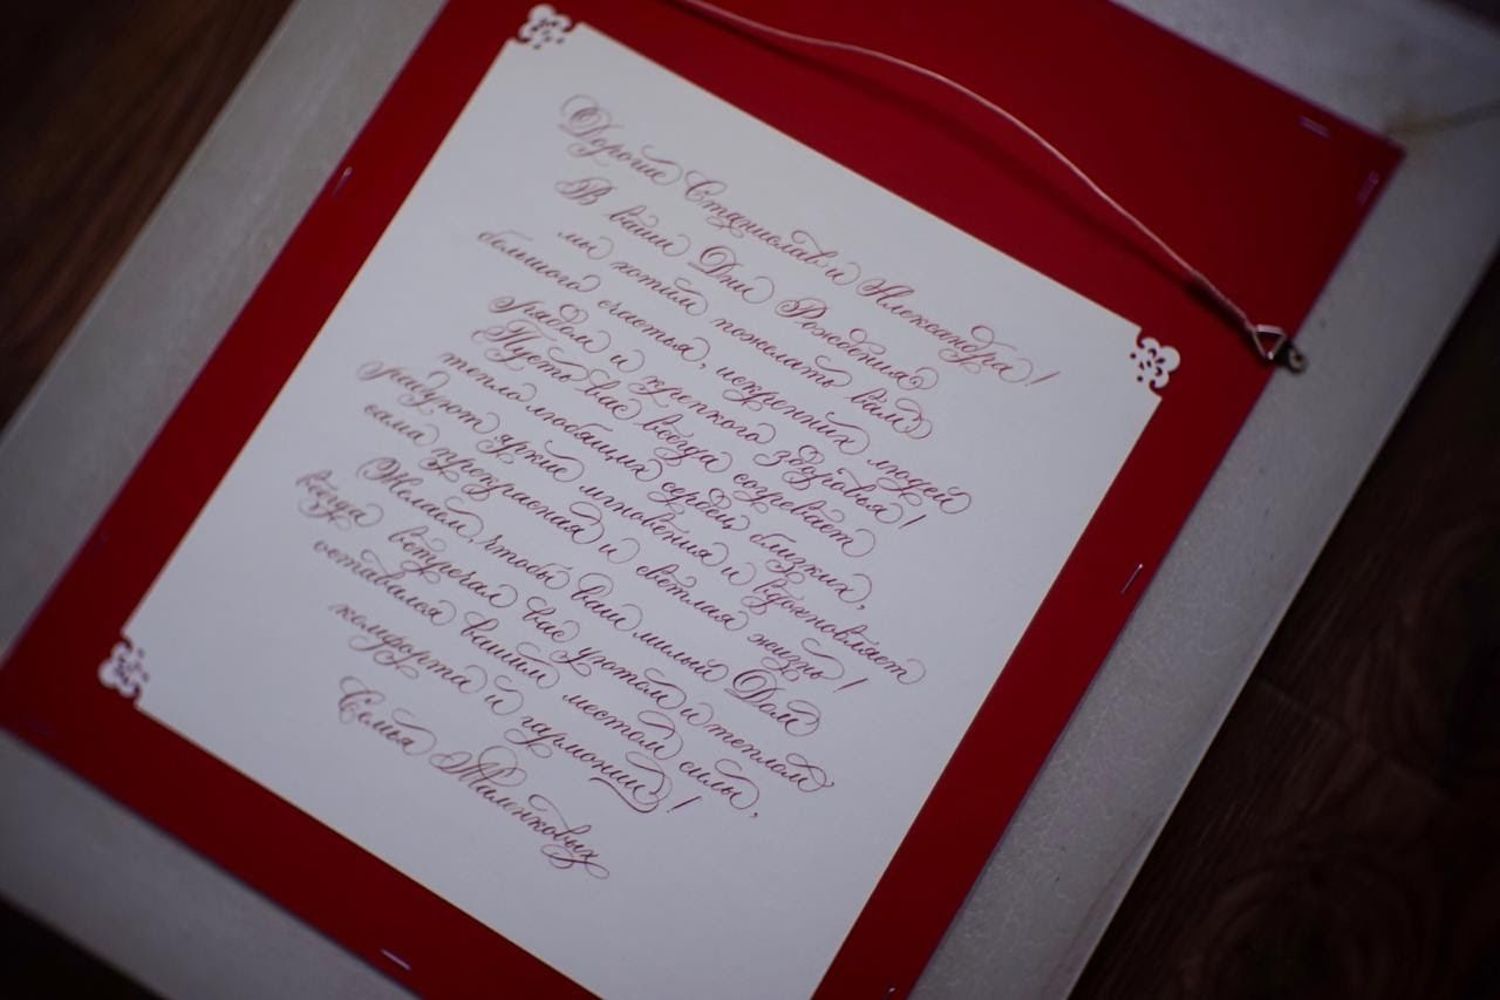 Дорогие Станислав и Александра!
В ваши Дни Рождения
мы хотим пожелать вам
большого счастья, искренних людей
рядом и крепкого здоровья!
Пусть вас всегда согревает
тепло любящих сердец близких,
радуют яркие мгновения и вдохновляет
сама прекрасная и светлая жизнь!
Желаем, чтобы ваш милый Дом
всегда встречал вас уютом и теплом,
оставался вашим местом силы,
комфорта и гармонии!
Семья Маленковых